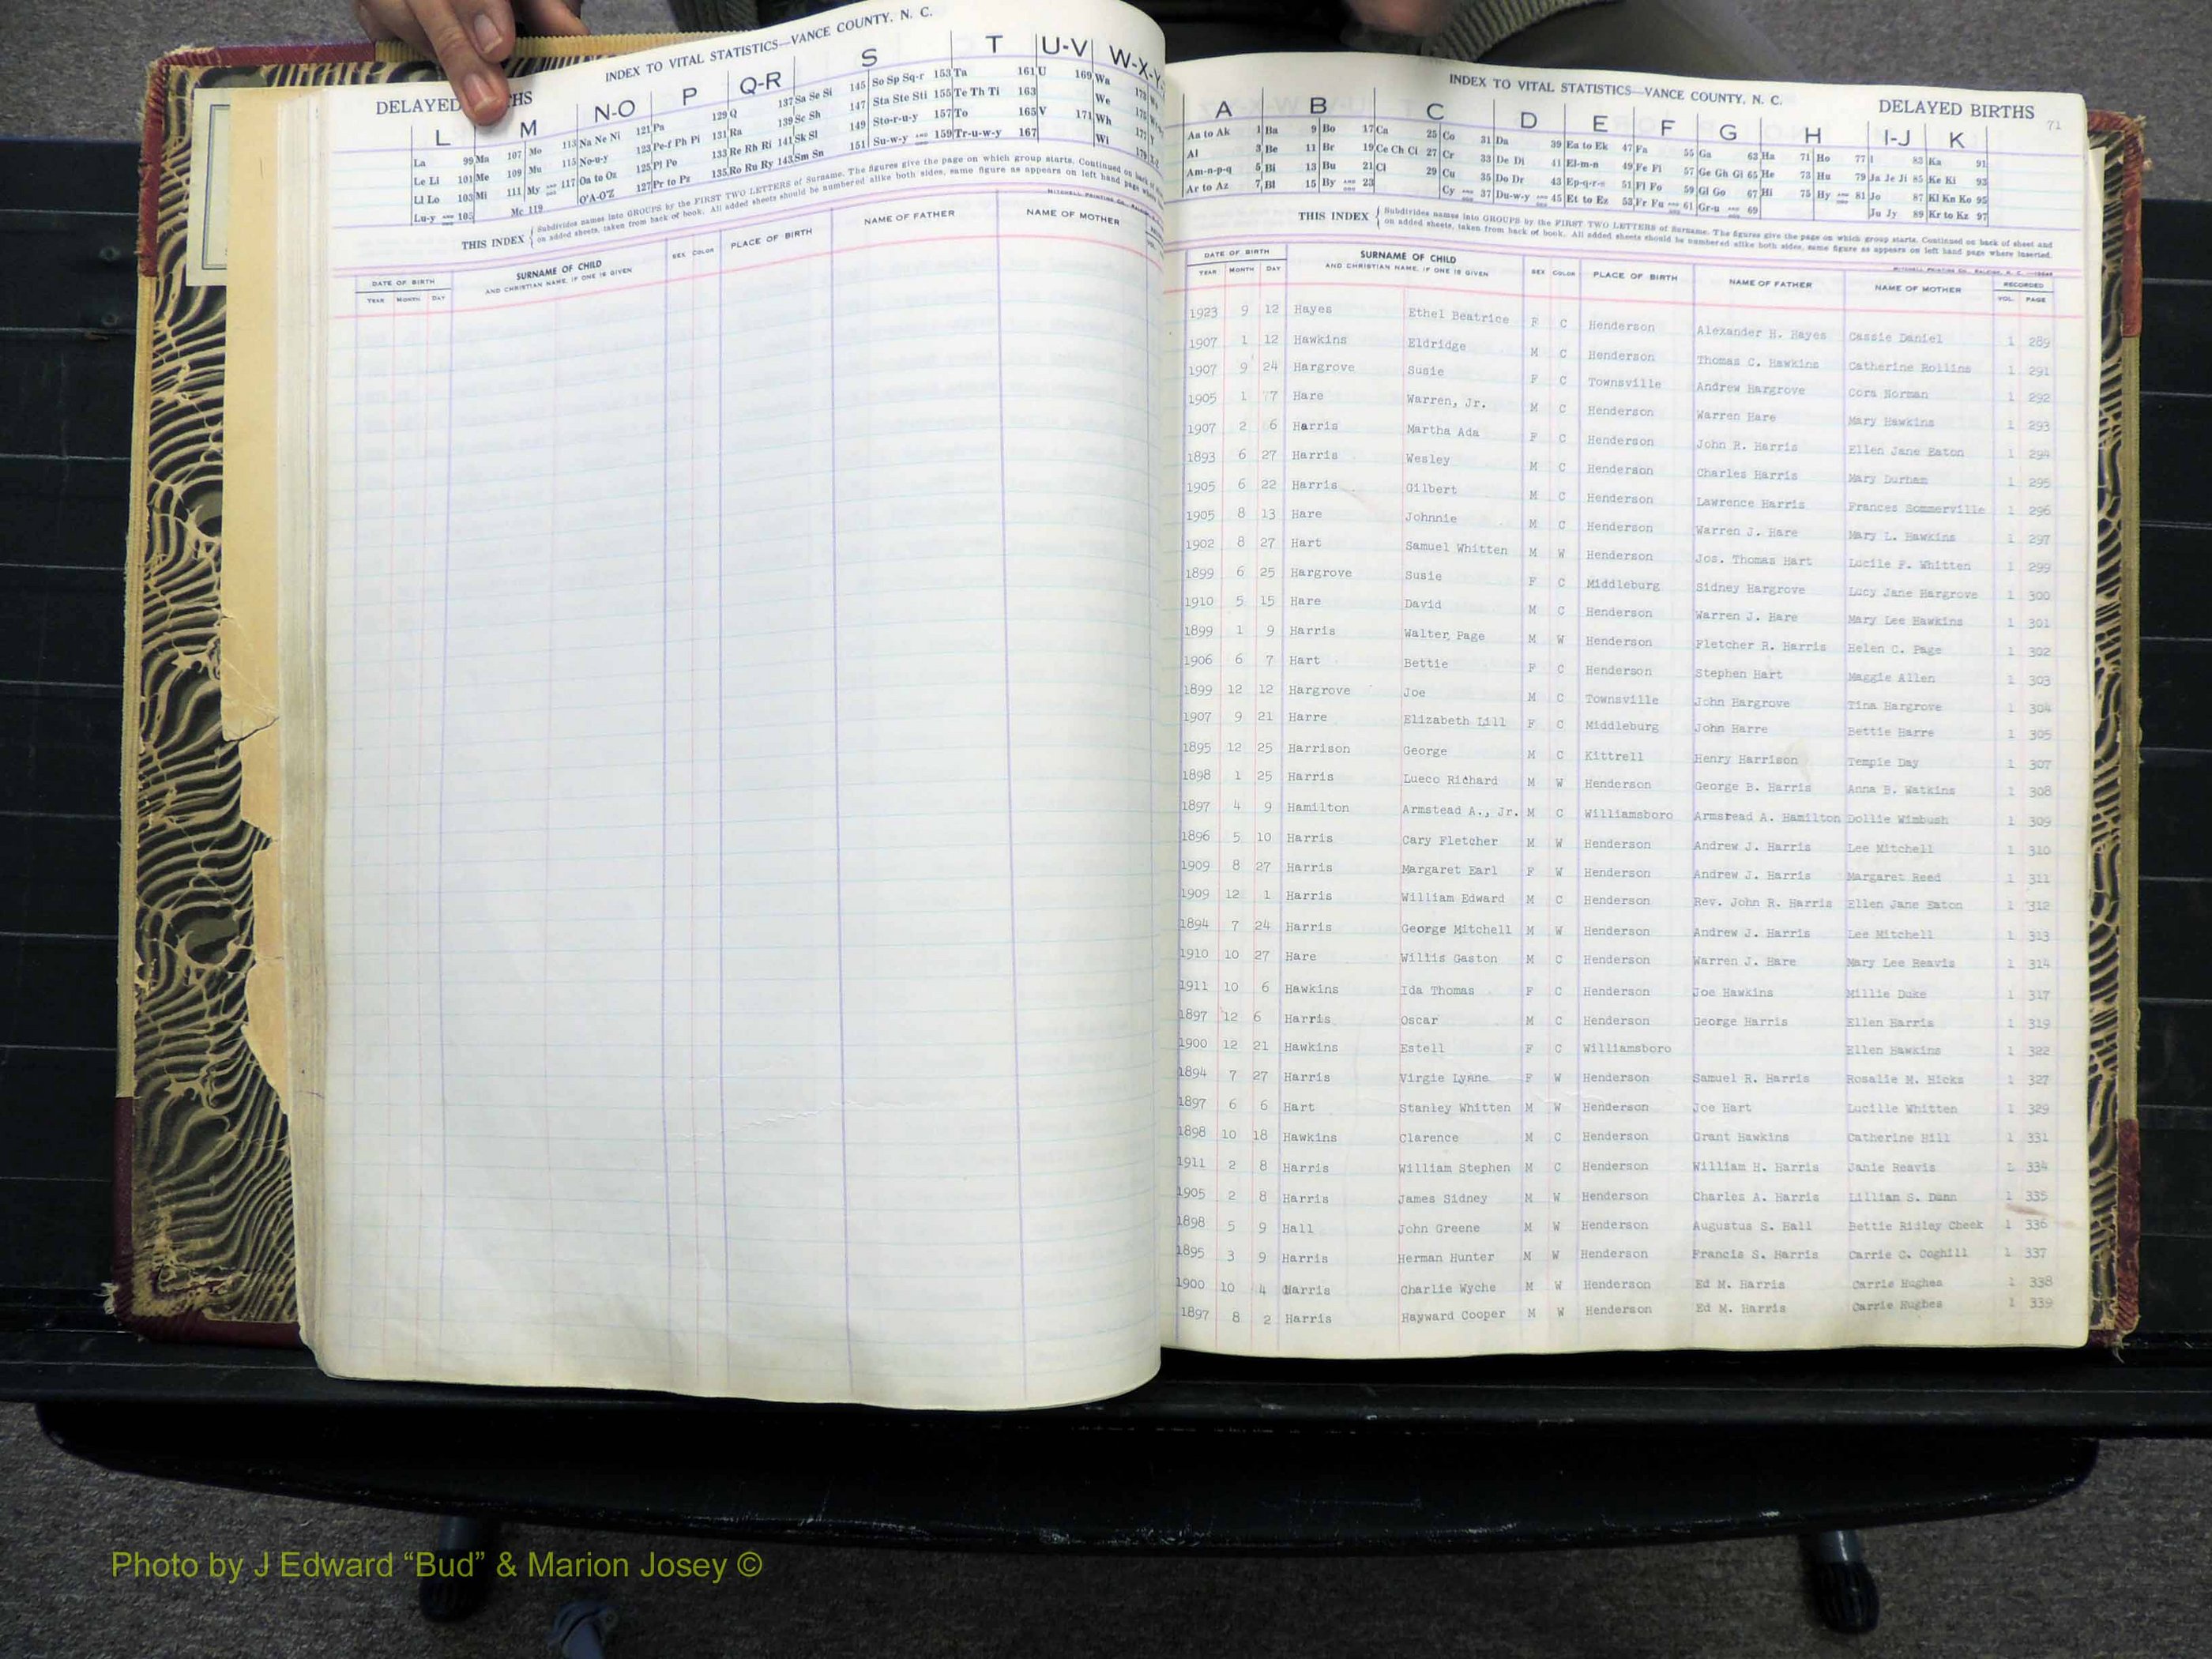 INDEX TO VITAL STATISTICS—VANCE COUNTY, N. C.
DELAYED
L M N-O P Q-R S T U-V W-X-Y
La 99 Ma 107 Mo 113 Na Ne Ni 121 Pa 129 Q 137 Sa Se Si 145 So Sp Sq-r 153 Ta 161 U 169 Wa
Le Li 101 Me 109 Mu 115 No-u-y 123 Pe-f Ph Pi 131 Ra 139 Sc Sh 147 Sta Ste Sti 155 Te Th Ti 163 We
Ll Lo 103 Mi 111 My 117 On to Oz 125 Pl Po 133 Re Rh Ri 141 Sk Sl 149 Sto-r-u-y 157 To 165 V 171 Wh
Lu-y 105 Mc 119 O'A-O'Z 127 Pr to Pz 135 Ro Ru Ry 143 Sm Sn 151 Su-w-y 159 Tr-u-w-y 167 Wi
THIS INDEX { Subdivides names into GROUPS by the FIRST TWO LETTERS of Surname. The figures give the page on which group starts. Continued on back of
on added sheets, taken from back of book. All added sheets should be numbered alike both sides, same figure as appears on left hand page
DATE OF BIRTH SURNAME OF CHILD SEX COLOR PLACE OF BIRTH NAME OF FATHER NAME OF MOTHER
YEAR MONTH DAY AND CHRISTIAN NAME, IF ONE IS GIVEN
INDEX TO VITAL STATISTICS—VANCE COUNTY, N. C. DELAYED BIRTHS 71
A B C D E F G H I-J K
Aa to Ak 1 Ba 9 Bo 17 Ca 25 Co 31 Da 39 Ea to Ek 47 Fa 55 Ga 63 Ha 71 Ho 77 I 83 Ka 91
Al 3 Be 11 Br 19 Ce Ch Ci 27 Cr 33 De Di 41 El-m-n 49 Fe Fi 57 Ge Gh Gi 65 He 73 Hu 79 Ja Je Ji 85 Ke Ki 93
Am-n-p-q 5 Bi 13 Bu 21 Cl 29 Cu 35 Do Dr 43 Ep-q-r-s 51 Fl Fo 59 Gl Go 67 Hi 75 Hy AND 81 Jo 87 Kl Kn Ko 95
Ar to Az 7 Bl 15 By AND 23 Cy AND 37 Du-w-y AND 45 Et to Ez 53 Fr Fu AND 61 Gr-u AND 69 Ju Jy 89 Kr to Kz 97
THIS INDEX { Subdivides names into GROUPS by the FIRST TWO LETTERS of Surname. The figures give the page on which group starts. Continued on back of sheet and
on added sheets, taken from back of book. All added sheets should be numbered alike both sides, same figure as appears on left hand page where inserted.
DATE OF BIRTH SURNAME OF CHILD SEX COLOR PLACE OF BIRTH NAME OF FATHER NAME OF MOTHER RECORDED
YEAR MONTH DAY AND CHRISTIAN NAME, IF ONE IS GIVEN VOL. PAGE
1923 9 12 Hayes Ethel Beatrice F C Henderson Alexander H. Hayes Cassie Daniel 1 289
1907 1 12 Hawkins Eldridge M C Henderson Thomas C. Hawkins Catherine Rollins 1 291
1907 9 24 Hargrove Susie F C Townsville Andrew Hargrove Cora Norman 1 292
1905 1 77 Hare Warren, Jr. M C Henderson Warren Hare Mary Hawkins 1 293
1907 2 6 Harris Martha Ada F C Henderson John R. Harris Ellen Jane Eaton 1 294
1893 6 27 Harris Wesley M C Henderson Charles Harris Mary Durham 1 295
1905 6 22 Harris Gilbert M C Henderson Lawrence Harris Frances Sommerville 1 296
1905 8 13 Hare Johnnie M C Henderson Warren J. Hare Mary L. Hawkins 1 297
1902 8 27 Hart Samuel Whitten M W Henderson Jos. Thomas Hart Lucile F. Whitten 1 299
1899 6 25 Hargrove Susie F C Middleburg Sidney Hargrove Lucy Jane Hargrove 1 300
1910 5 15 Hare David M C Henderson Warren J. Hare Mary Lee Hawkins 1 301
1899 1 9 Harris Walter Page M W Henderson Fletcher R. Harris Helen C. Page 1 302
1906 6 7 Hart Bettie F C Henderson Stephen Hart Maggie Allen 1 303
1899 12 12 Hargrove Joe M C Townsville John Hargrove Tina Hargrove 1 304
1907 9 21 Harre Elizabeth Lill F C Middleburg John Harre Bettie Harre 1 305
1895 12 25 Harrison George M C Kittrell Henry Harrison Tempie Day 1 307
1898 1 25 Harris Lueco Richard M W Henderson George B. Harris Anna B. Watkins 1 308
1897 4 9 Hamilton Armstead A., Jr. M C Williamsboro Armstead A. Hamilton Dollie Wimbush 1 309
1896 5 10 Harris Cary Fletcher M W Henderson Andrew J. Harris Lee Mitchell 1 310
1909 8 27 Harris Margaret Earl F W Henderson Andrew J. Harris Margaret Reed 1 311
1909 12 1 Harris William Edward M C Henderson Rev. John R. Harris Ellen Jane Eaton 1 312
1894 7 24 Harris George Mitchell M W Henderson Andrew J. Harris Lee Mitchell 1 313
1910 10 27 Hare Willis Gaston M C Henderson Warren J. Hare Mary Lee Reavis 1 314
1911 10 6 Hawkins Ida Thomas F C Henderson Joe Hawkins Millie Duke 1 317
1897 12 6 Harris Oscar M C Henderson George Harris Ellen Harris 1 319
1900 12 21 Hawkins Estell F C Williamsboro Ellen Hawkins 1 322
1894 7 27 Harris Virgie Lynne F W Henderson Samuel R. Harris Rosalie M. Hicks 1 327
1897 6 6 Hart Stanley Whitten M W Henderson Joe Hart Lucille Whitten 1 329
1898 10 18 Hawkins Clarence M C Henderson Grant Hawkins Catherine Hill 1 331
1911 2 8 Harris William Stephen M C Henderson William H. Harris Janie Reavis 1 334
1905 2 8 Harris James Sidney M W Henderson Charles A. Harris Lillian S. Dunn 1 335
1898 5 9 Hall John Greene M W Henderson Augustus S. Hall Bettie Ridley Cheek 1 336
1895 3 9 Harris Herman Hunter M W Henderson Francis S. Harris Carrie C. Coghill 1 337
1900 10 4 Harris Charlie Wyche M W Henderson Ed M. Harris Carrie Hughes 1 338
1897 8 2 Harris Hayward Cooper M W Henderson Ed M. Harris Carrie Hughes 1 339
Photo by J Edward “Bud” & Marion Josey ©